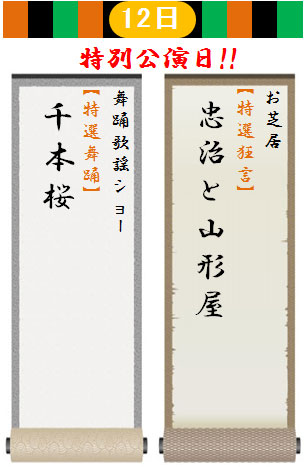 12日
特別公演日!!
お芝居
【特選狂言】
忠治と山形屋
舞踊歌謡ショー
【特選舞踊】
千本桜